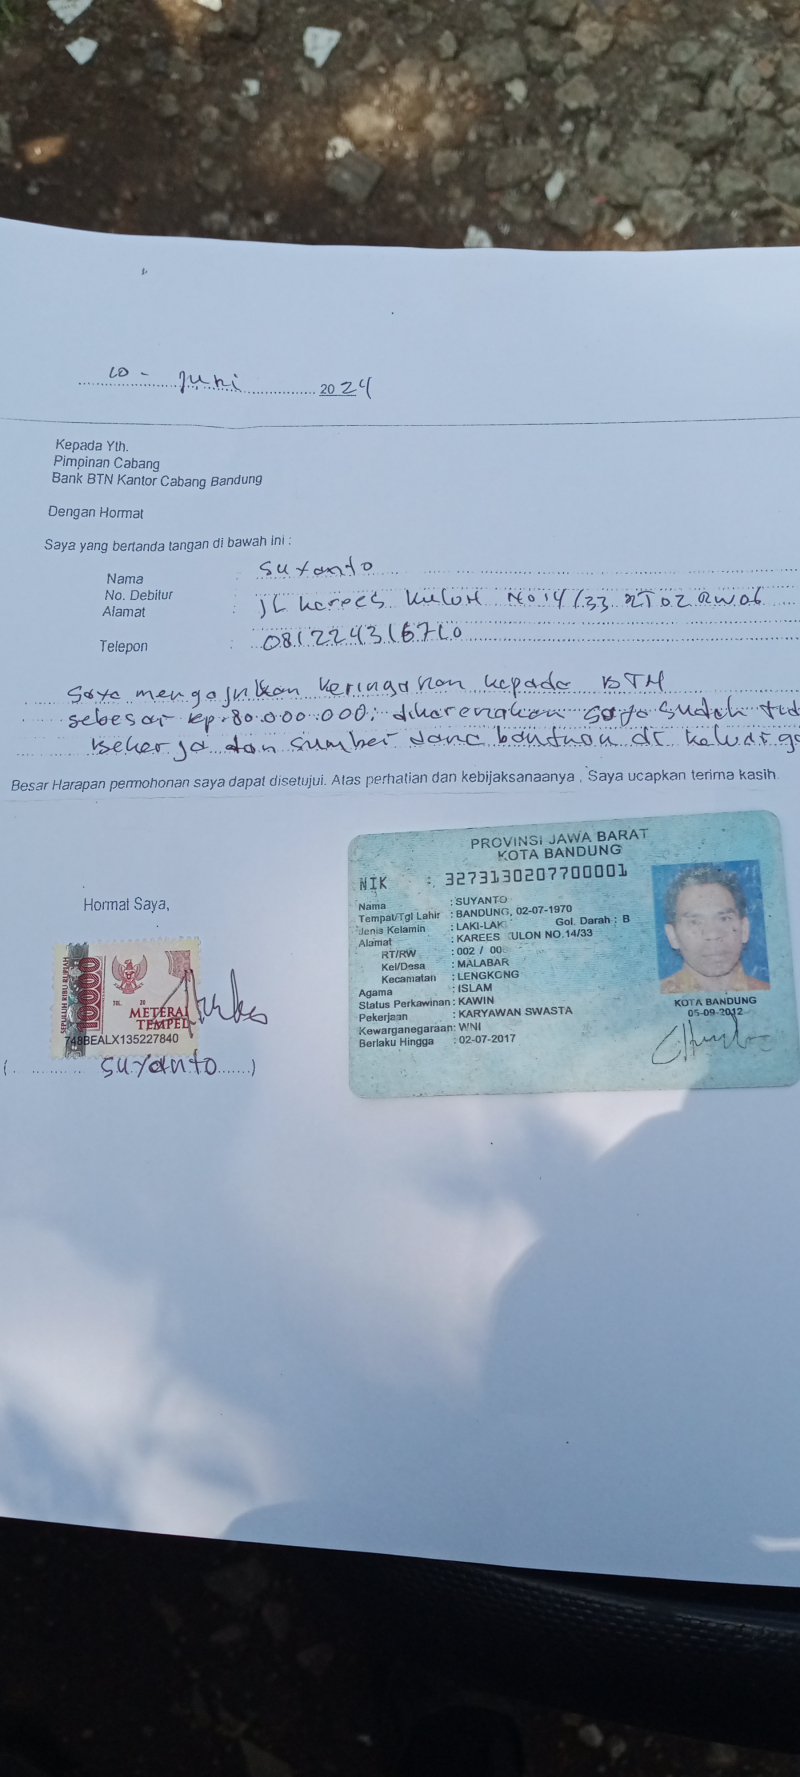 10 - Juni 2024
Kepada Yth.
Pimpinan Cabang
Bank BTN Kantor Cabang Bandung
Dengan Hormat
Saya yang bertanda tangan di bawah ini :
Nama : Suyanto
No. Debitur
Alamat : JL karees kulon No 14/33 RT 02 RW 06
Telepon : 081224316710
Saya mengajukan keringanan kepada BTN
sebesar Rp. 80.000.000; dikarenakan saya sudah
Bekerja dan sumber dana bantuan di keluarga
Besar Harapan permohonan saya dapat disetujui. Atas perhatian dan kebijaksanaanya , Saya ucapkan terima kasih
Hormat Saya,
SEPULUH RIBU RUPIAH
10000
METERAI
TEMPEL
748BEALX135227840
( Suyanto )
PROVINSI JAWA BARAT
KOTA BANDUNG
NIK : 3273130207700001
Nama : SUYANTO
Tempat/Tgl Lahir : BANDUNG, 02-07-1970
Jenis Kelamin : LAKI-LAK Gol. Darah : B
Alamat : KAREES ULON NO.14/33
RT/RW : 002 / 00
Kel/Desa : MALABAR
Kecamatan : LENGKONG
Agama : ISLAM
Status Perkawinan : KAWIN
Pekerjaan : KARYAWAN SWASTA
Kewarganegaraan: WNI
Berlaku Hingga : 02-07-2017
KOTA BANDUNG
05-09-2012